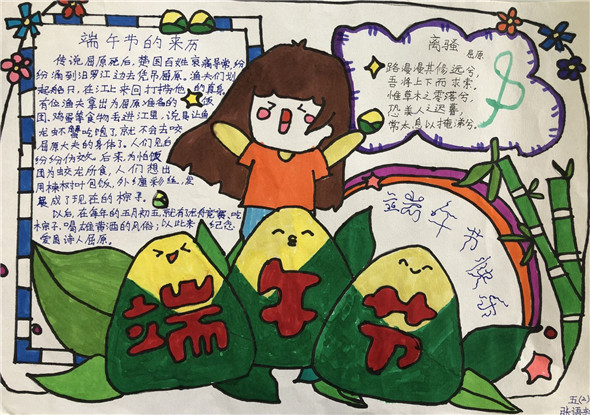 端午节的来历
传说屈原死后,楚国百姓哀痛异常,纷
纷涌到汨罗江边去凭吊屈原。渔夫们划
起船只,在江上来回打捞他的真身。
有位渔夫拿出为屈原准备的饭
团、鸡蛋等食物丢进江里,说是让鱼
龙虾蟹吃饱了,就不会去咬
屈原大夫的身体了。人们见后
纷纷仿效。后来为怕饭
团为蛟龙所食,人们想出
用楝树叶包饭,外缠彩丝,发
展成了现在的棕子。
以后,在每年的五月初五,就有龙舟竞赛、吃
粽子、喝雄黄酒的风俗;以此来纪念
爱国诗人屈原。
离骚
屈原
路漫漫其修远兮,
吾将上下而求索。
惟草木之零落兮,
恐美人之迟暮。
常太息以掩涕兮,
端午节快乐
端午节
五(2)
张语